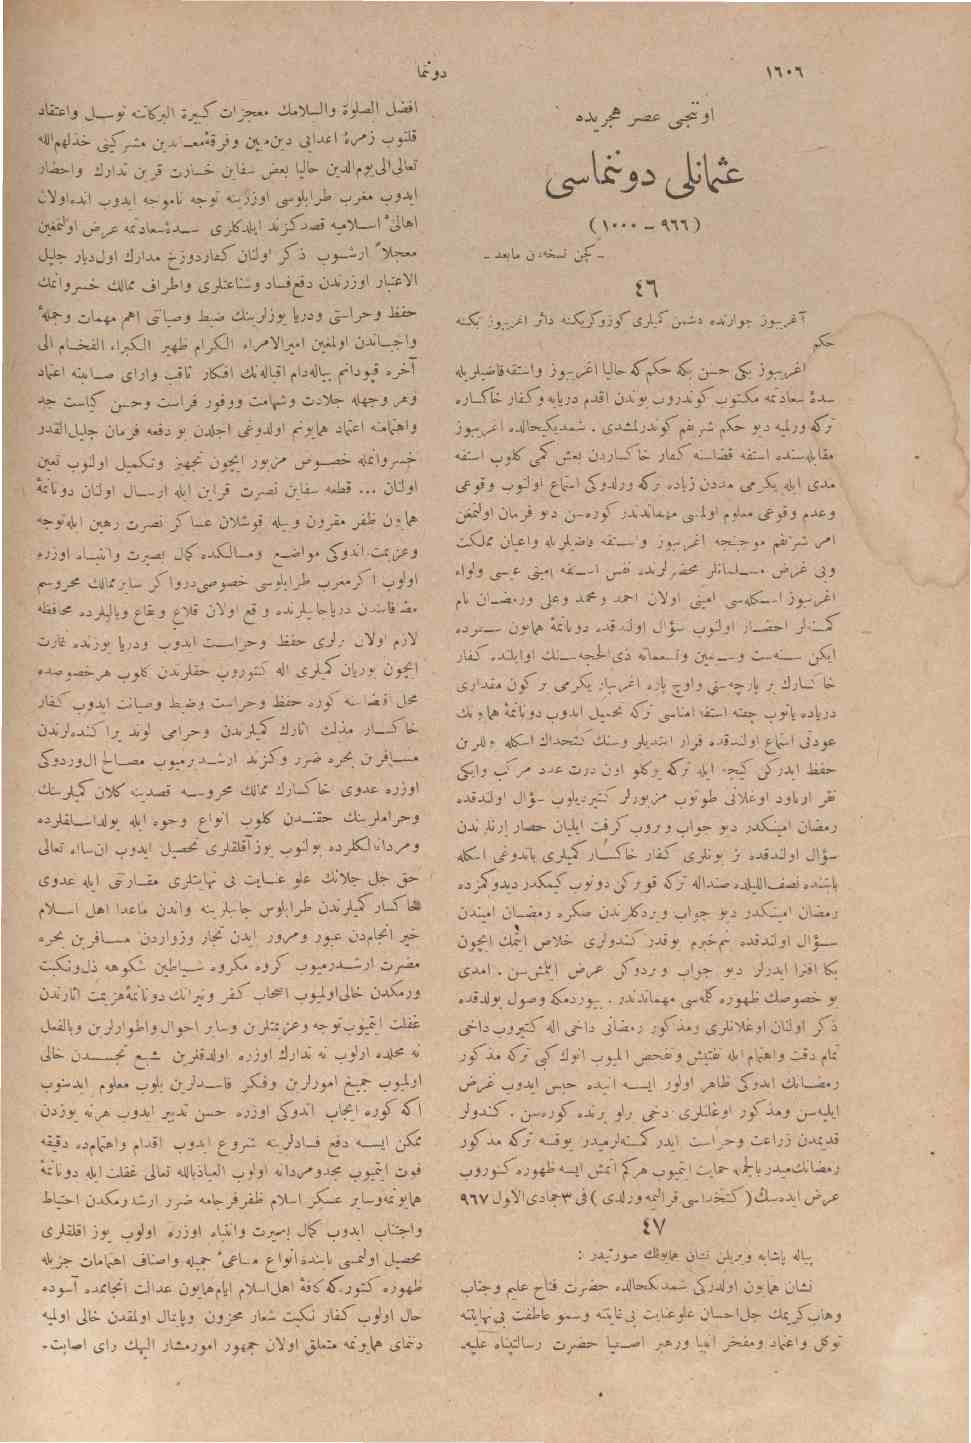 ١٦٠٦
دوننما
اوننجى عصر هجريده
عثمانلى دوننماسى
( ٩٦٦ – ١٠٠٠ )
ـ كچن نسخه‌دن مابعد ـ
٤٦
آغريبوز جوارنده دشمن كميلرى كوزوكديكنه دائر اغريبوز بكنه
حكم
اغريبوز بكى حسن بكه حكم كه حاليا اغريبوز واستفه قاضيلريله
سدۀ سعادتمه مكتوب كوندروب بوندن اقدم دريايه وكفار خاكساره
تركه ورلميه ديو حكم شريفم كوندرلمشدى . شمديكيحالده اغريبوز
مقابله‌سنده استفه قضاسنه كفار خاكساردن بعض كمى كلوب استفه
مدى ايله يكرمى مددن زياده تركه ورلدوكى استماع اولنوب وقوعى
وعدم وقوعى معلوم اولمسى مهماتدندر كوره‌سن ديو فرمان اولنمغن
امر شريفم موجبنجه اغريبوز واستفه قاضيلريله واعيان مملكت
وبى غرض مسلمانلر محضرلرنده نفس استفه امينى عيسى ولواء
اغريبوز اسكله‌سى امينى اولان احمد ومحمد وعلى ورمضان نام
كمسنه‌لر احضار اولنوب سؤال اولندقده دونانمۀ همايون سفرده
ايكن سنه ست وستين وتسعمائه ذى الحجه‌سنك اوايلنده كفار
خاكسارك بر پارچه‌سى واوچ پاره اغرپار يكرمى بر كون مقدارى
درياده ياتوب جفته استفا امناسى تركه تحميل ايدوب دونانمۀ همايونك
عودتى استماع اولندقده فرار ايتديلر وسنك كتخداك اسكله‌لرين
حفظ ايدركن كيجه ايله تركه يوكلو اون درت عدد مركب وايكى
نفر ارناود اوغلانى طوتوب مزبورلر كتيرديلوب سؤال اولندقده
رمضان امينكدر ديو جواب ويروب كرفت ايليان حصار ارنلرندن
سؤال اولندقده بز بونلرى كفار خاكسار كميلرى ياتدوغى اسكله
يابنده نصف الليلده صنداله تركه قويركن دونوب كيمكدر ديدوكمزده
رمضان امينكدر ديو جواب ويردكلرندن صكره رمضان اميندن
سؤال اولندقده بنم خبرم يوقدر كندولرى خلاص ايتمك ايچون
بكا افترا ايدرلر ديو جواب ويردوكى عرض ايتمش‌سن . امدى
بو خصوصك ظهوره كلمه‌سى مهماتدندر . بيوردمكه وصول بولدقده
ذكر اولنان اوغلانلرى ومذكور رمضانى داخى اله كتيروب داخى
تمام دقت واهتمام ايله تفتيش وتفحص ايليوب انوك كبى تركه مذكور
رمضانك ايدوكى ظاهر اولور ايسه انيده حبس ايدوب عرض
ايليه‌سن ومذكور اوغلنلرى دخى يرلو يرنده كوره‌سن . كندولر
قديمدن زراعت وحراست ايدر كمسنه‌لرميدر يوقسه تركه مذكور
رمضانك‌ميدر بالجمله حمايت ايتميوب هركم ايتمش ايسه ظهوره كتوروب
عرض ايده‌سك ( كتخداسى قرا اليمه ورلدى ) فى ٣ جمادى الاول ٩٦٧
٤٧
پياله پاشايه ويريلن نشان همايونك صورتيدر :
نشان همايون اولدركى شمديكيحالده حضرت فتاح عليم وجناب
وهاب كريمك جل احسانه علو عنايت بى غايتنه وسمو عاطفت بى نهايتنه
توكل واعتماد ومفخر انبيا ورهبر اصفيا حضرت رسالتپناه عليه‌ـ
افضل الصلوة والسلامك معجزات كبيرة البركاتنه توسل واعتقاد
قلنوب زمرۀ اعداى دين مبين وفرقۀ معاندين مشركينى خذلهم الله
تعالى الى يوم الدين حاليا بعض سفاين خسارت قرين تدارك واحضار
ايدوب مغرب طرابلوسى اوزرينه توجه ناموجه ايدوب انده اولان
اهالئ اسلاميه قصد كزند ايلدكلرى سدۀ سعادتمه عرض اولنمغين
معجلاً ارشوب ذكر اولنان كفار دوزخ مدارك اول ديار جليل
الاعتبار اوزرندن دفع فساد وشناعتلرى واطراف ممالك خسروانمك
حفظ وحراستى ودريا يوزلرينك ضبط وصيانتى اهم مهمات وجملۀ
واجباتدن اولمغين امير الامراء الكرام ظهير الكبراء الفخام الى
آخره قپودانم پياله دام اقباله‌نك افكار ثاقب واراى صائبنه اعتماد
وهر وجهله جلادت وشهامت ووفور فراست وحسن كياست جد
واهتمامنه اعتماد همايونم اولدوغى اجلدن بو دفعه فرمان جليل القدر
خسروانمله خصوص مزبور ايچون تجهيز وتكميل اولنوب تعين
اولنان ... قطعه سفاين نصرت قراين ايله ارسال اولنان دونانمۀ
همايون ظفر مقرون وبيله قوشلان عساكر نصرت رهين ايله توجه
وعزيمت اندوكى مواضع ومسالكده كمال بصيرت وانتباه اوزره
اولوب اكر مغرب طرابلوسى خصوصى‌در و اكر ساير ممالك محروسه
مضافاتدن درياجانبلرنده واقع اولان قلاع وبقاع وياليلرده محافظه
لازم اولان يرلرى حفظ وحراست ايدوب ودريا يوزنده غارت
ايچون يوريان كميلرى اله كتوروب حقلرندن كلوب هر خصوصده
محل اقتضاسنه كوره حفظ وحراست وضبط وصيانت ايدوب كفار
خاكسار مذلت اثارك كميلرندن وحرامى لوند پراكنده‌لرندن
مسافرين بحره ضرر وكزند ارشديرميوب مصالح ال وردوكى
اوزره عدوى خاكسارك ممالك محروسه قصدينه كلان كميلرينك
وحراميلرينك حقندن كلوب انواع وجوه ايله يولداشلقلرده
ومردانه‌لكلرده بولنوب يوز آقلقلرى تحصيل ايدوب ان شاء الله تعالى
حق جل جلالنك علو عنايت بى نهايتلرى ايله عدوى
خاكسار كميلرندن طرابلوس جانبلرينه واندن ماعدا اهل اسلام
خير انجامدن عبور ومرور ايدن تجار وزواردن مسافرين بحره
مضرت ارشدرميوب كروه مكروه شياطين شكوهه ذل ونكبت
ورمكدن خالى اولميوب اصحاب كفر ونيرانك دونانمۀ هزيمت اثارندن
غفلت ايتميوب توجه وعزيمتلرين وساير احوال واطوارلرين وبالفعل
نه محلده اولوب نه تدارك اوزره اولدقلرين تتبع تجسسدن خالى
اولميوب جميع امورلرين وفكر فاسدلرين بلوب معلوم ايدنوب
اكه كوره ايجاب اندوكى اوزره حسن تدبير ايدوب هر نه يوزدن
ممكن ايسه دفع فسادلرينه شروع ايدوب اقدام واهتمام‌ده دقيقه
فوت ايتميوب مجد ومردانه اولوب العياذ بالله تعالى غفلت ايله دونانمۀ
همايونمه وساير عسكر اسلام ظفر فرجامه ضرر ارشدرمكدن احتياط
واجتناب ايدوب كمال بصيرت وانتباه اوزره اولوب يوز اقلقلرى
تحصيل اولنمسى بابنده انواع مساعئ جميله واصناف اهتمامات جزيله
ظهوره كتوره كه كافۀ اهل اسلام ايام همايون عدالت انجاممده آسوده
حال اولوب كفار نكبت شعار محزون وپايمال اولمقدن خالى اولميه
دنماى همايونمه متعلق اولان جمهور امور مشار اليهك راى اصابت‌ـ